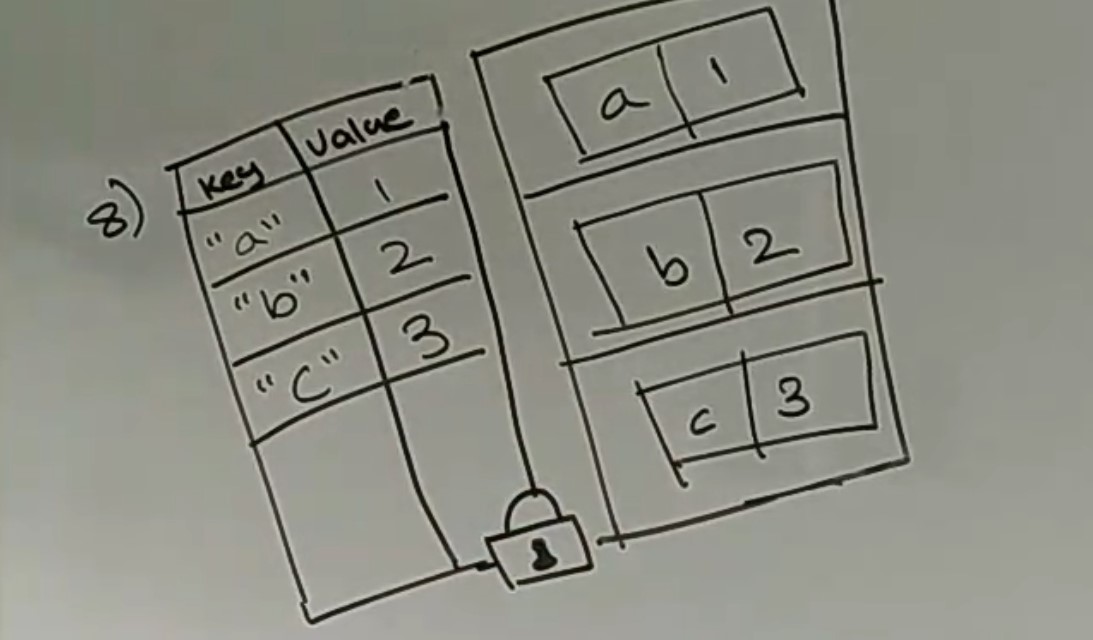 8)
key value
"a" 1
"b" 2
"c" 3
a 1
b 2
c 3